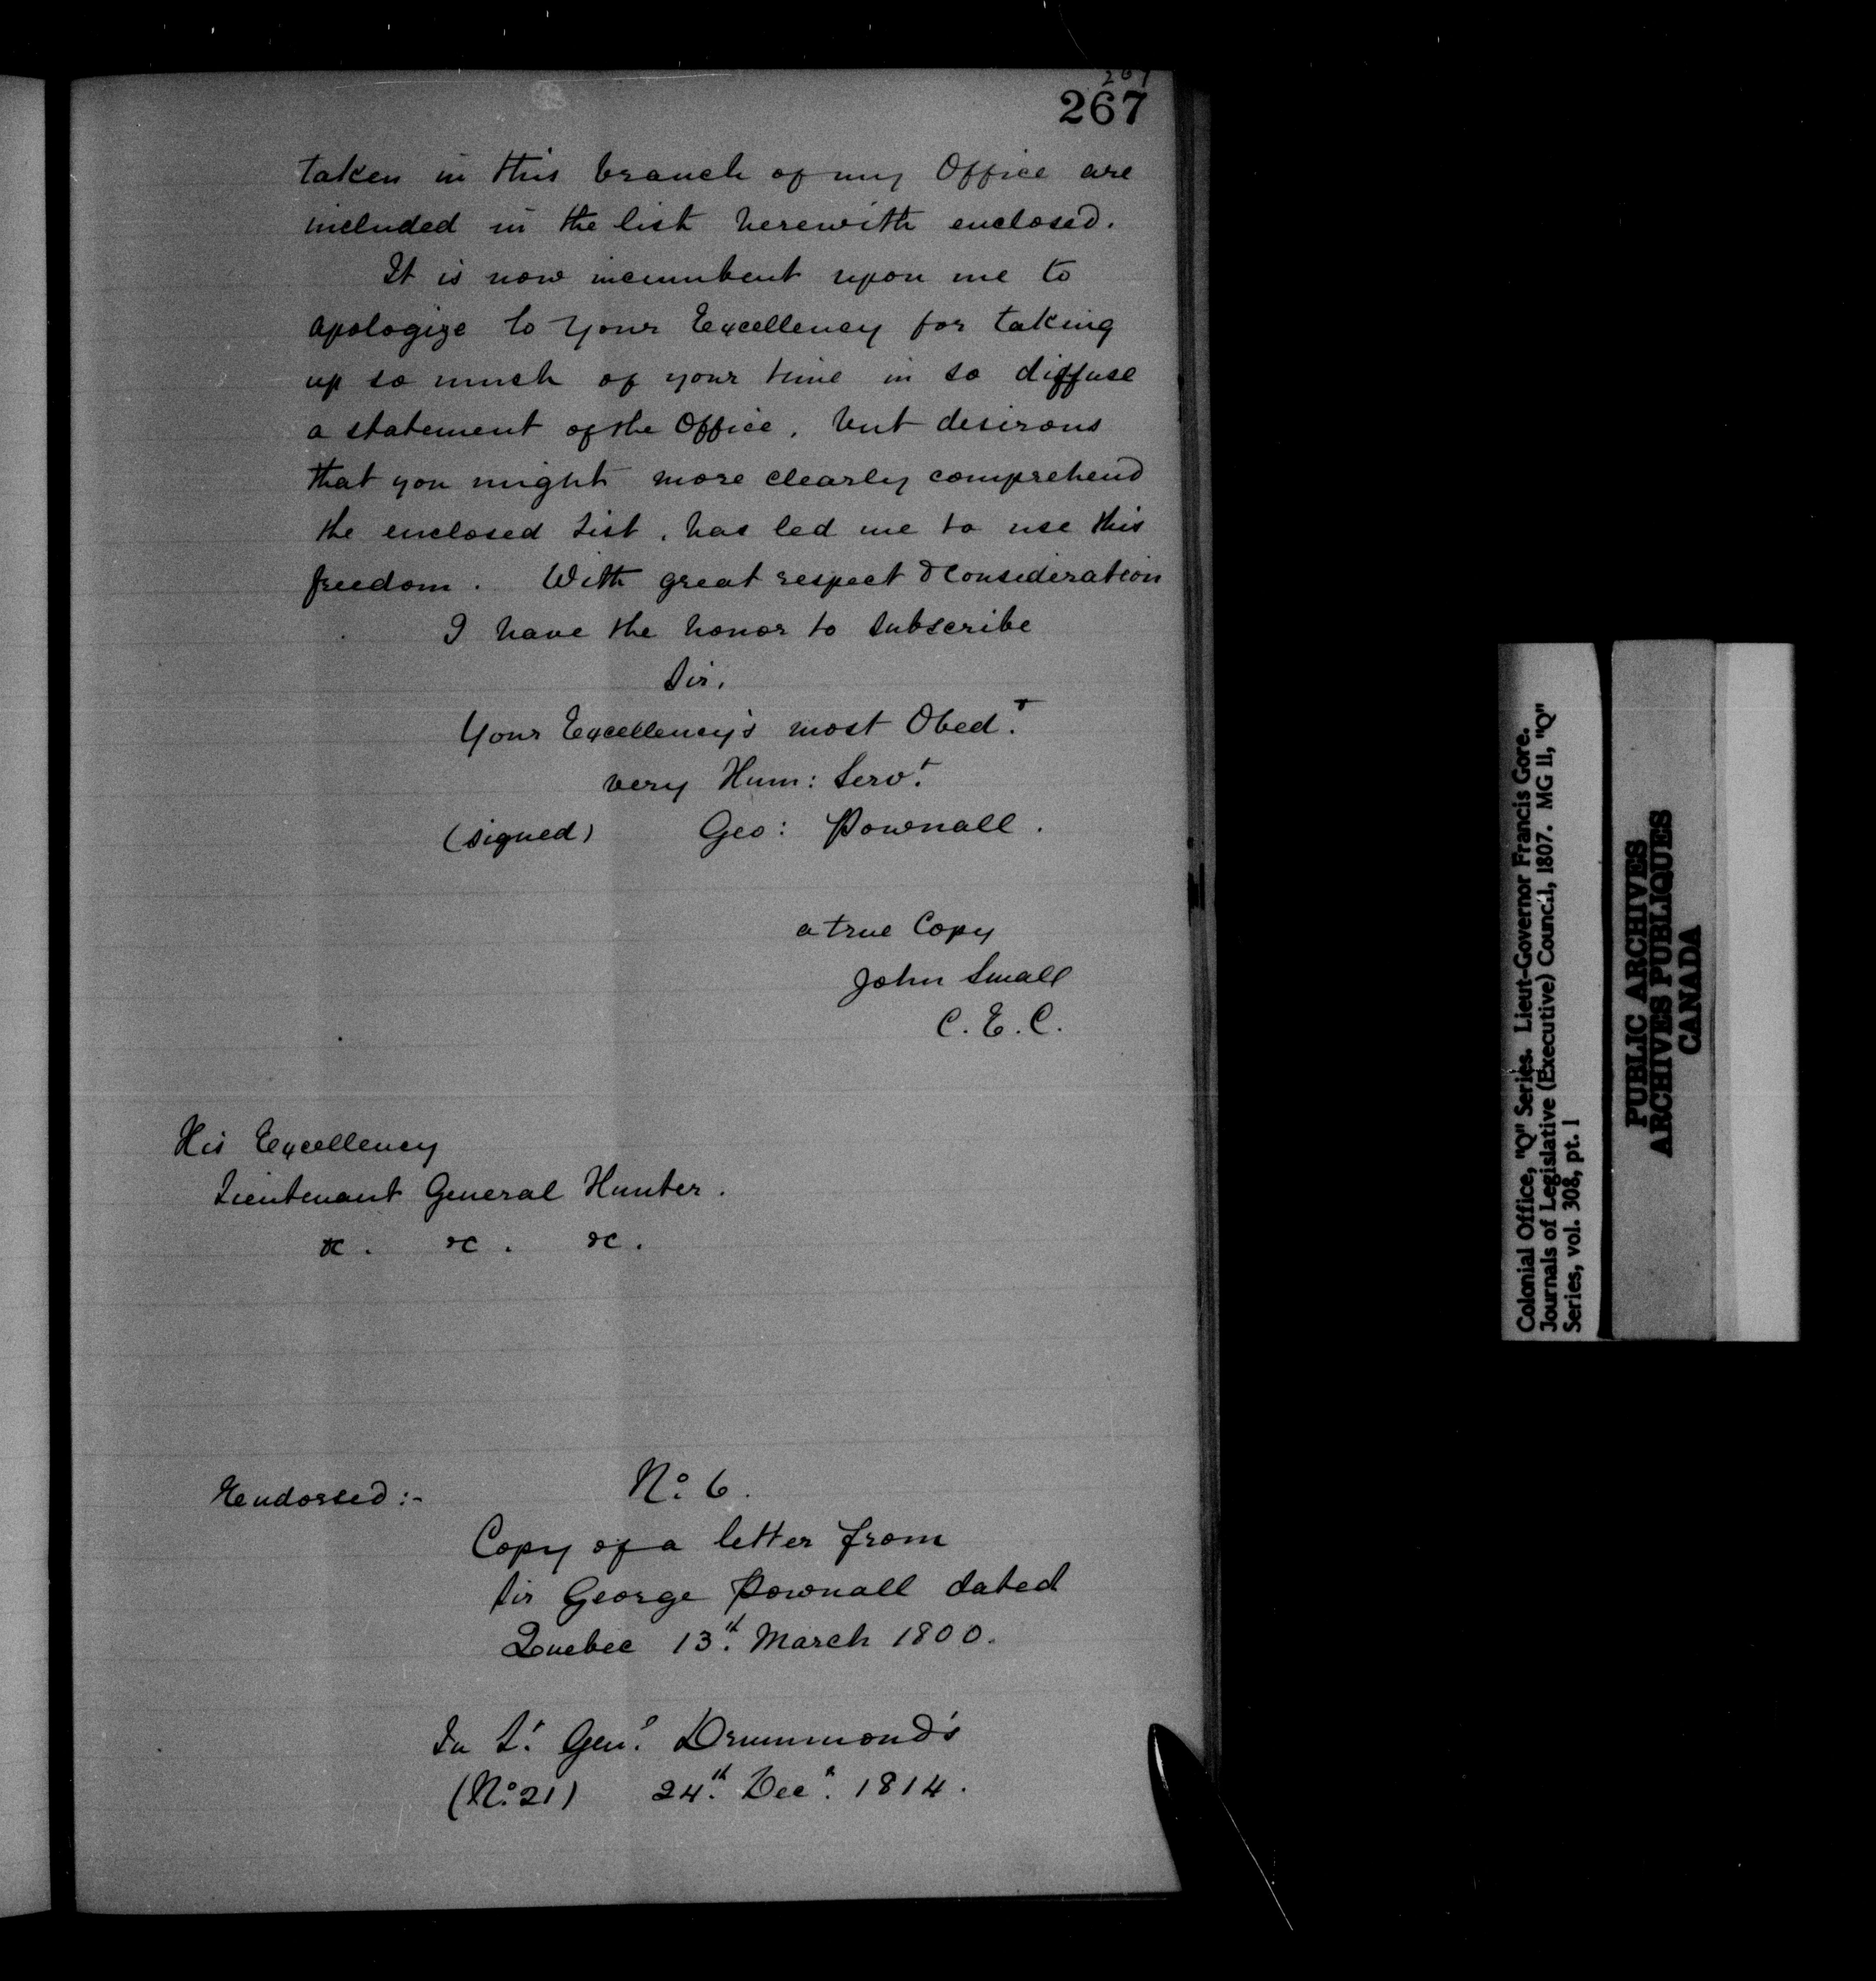 267
267
taken in this branch of my Office are
included in the list herewith enclosed.
It is now incumbent upon me to
apologize to Your Excellency for taking
up so much of your time in so diffuse
a statement of the Office, but desirous
that you might more clearly comprehend
the enclosed List, has led me to use this
freedom. With great respect & Consideration
I have the honor to subscribe
Sir,
Your Excellency's most Obed.t
very Hum: Serv.t
(signed) Geo: Pownall.
a true Copy
John Small
C. E. C.
His Excellency
Lieutenant General Hunter.
&c. &c. &c.
Endorsed:- No. 6.
Copy of a letter from
Sir George Pownall dated
Quebec 13.th March 1800.
In L.t Gen.l Drummond's
(No. 21) 24.th Dec.r 1814.
Colonial Office, "Q" Series. Lieut-Governor Francis Gore.
Journals of Legislative (Executive) Council, 1807. MG 11, "Q"
Series, vol. 308, pt. 1
PUBLIC ARCHIVES
ARCHIVES PUBLIQUES
CANADA